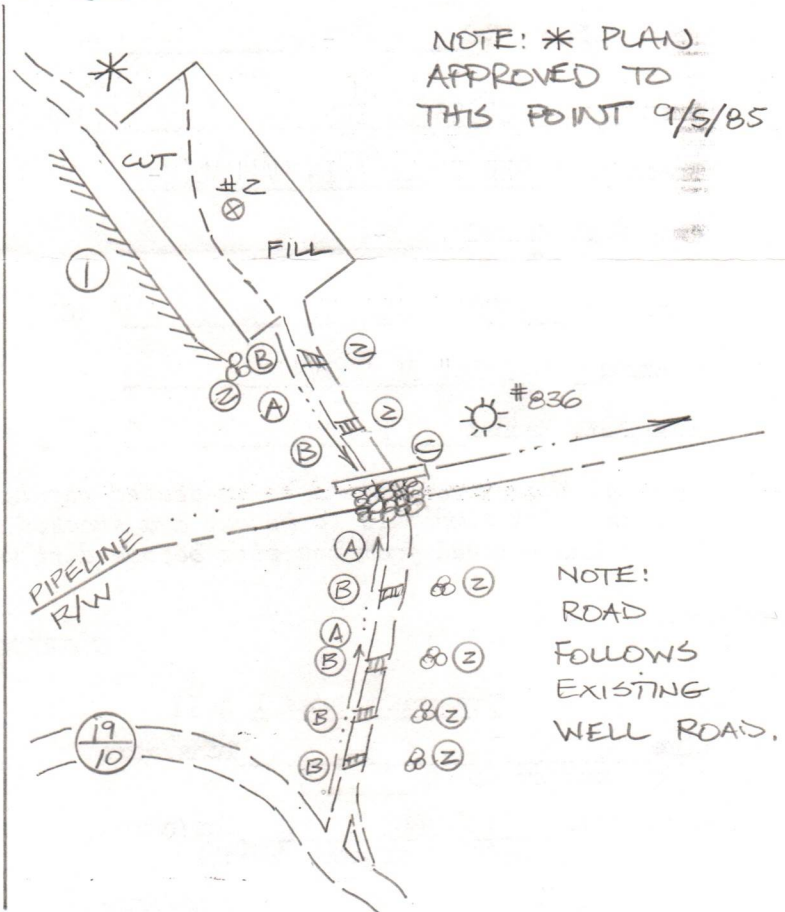 NOTE: * PLAN
APPROVED TO
THIS POINT 9/5/85
*
CUT
#2
FILL
1
B
2
2
A
2
B
C
#836
PIPELINE
R/W
A
B
2
A
B
2
B
2
B
2
19
10
NOTE:
ROAD
FOLLOWS
EXISTING
WELL ROAD.